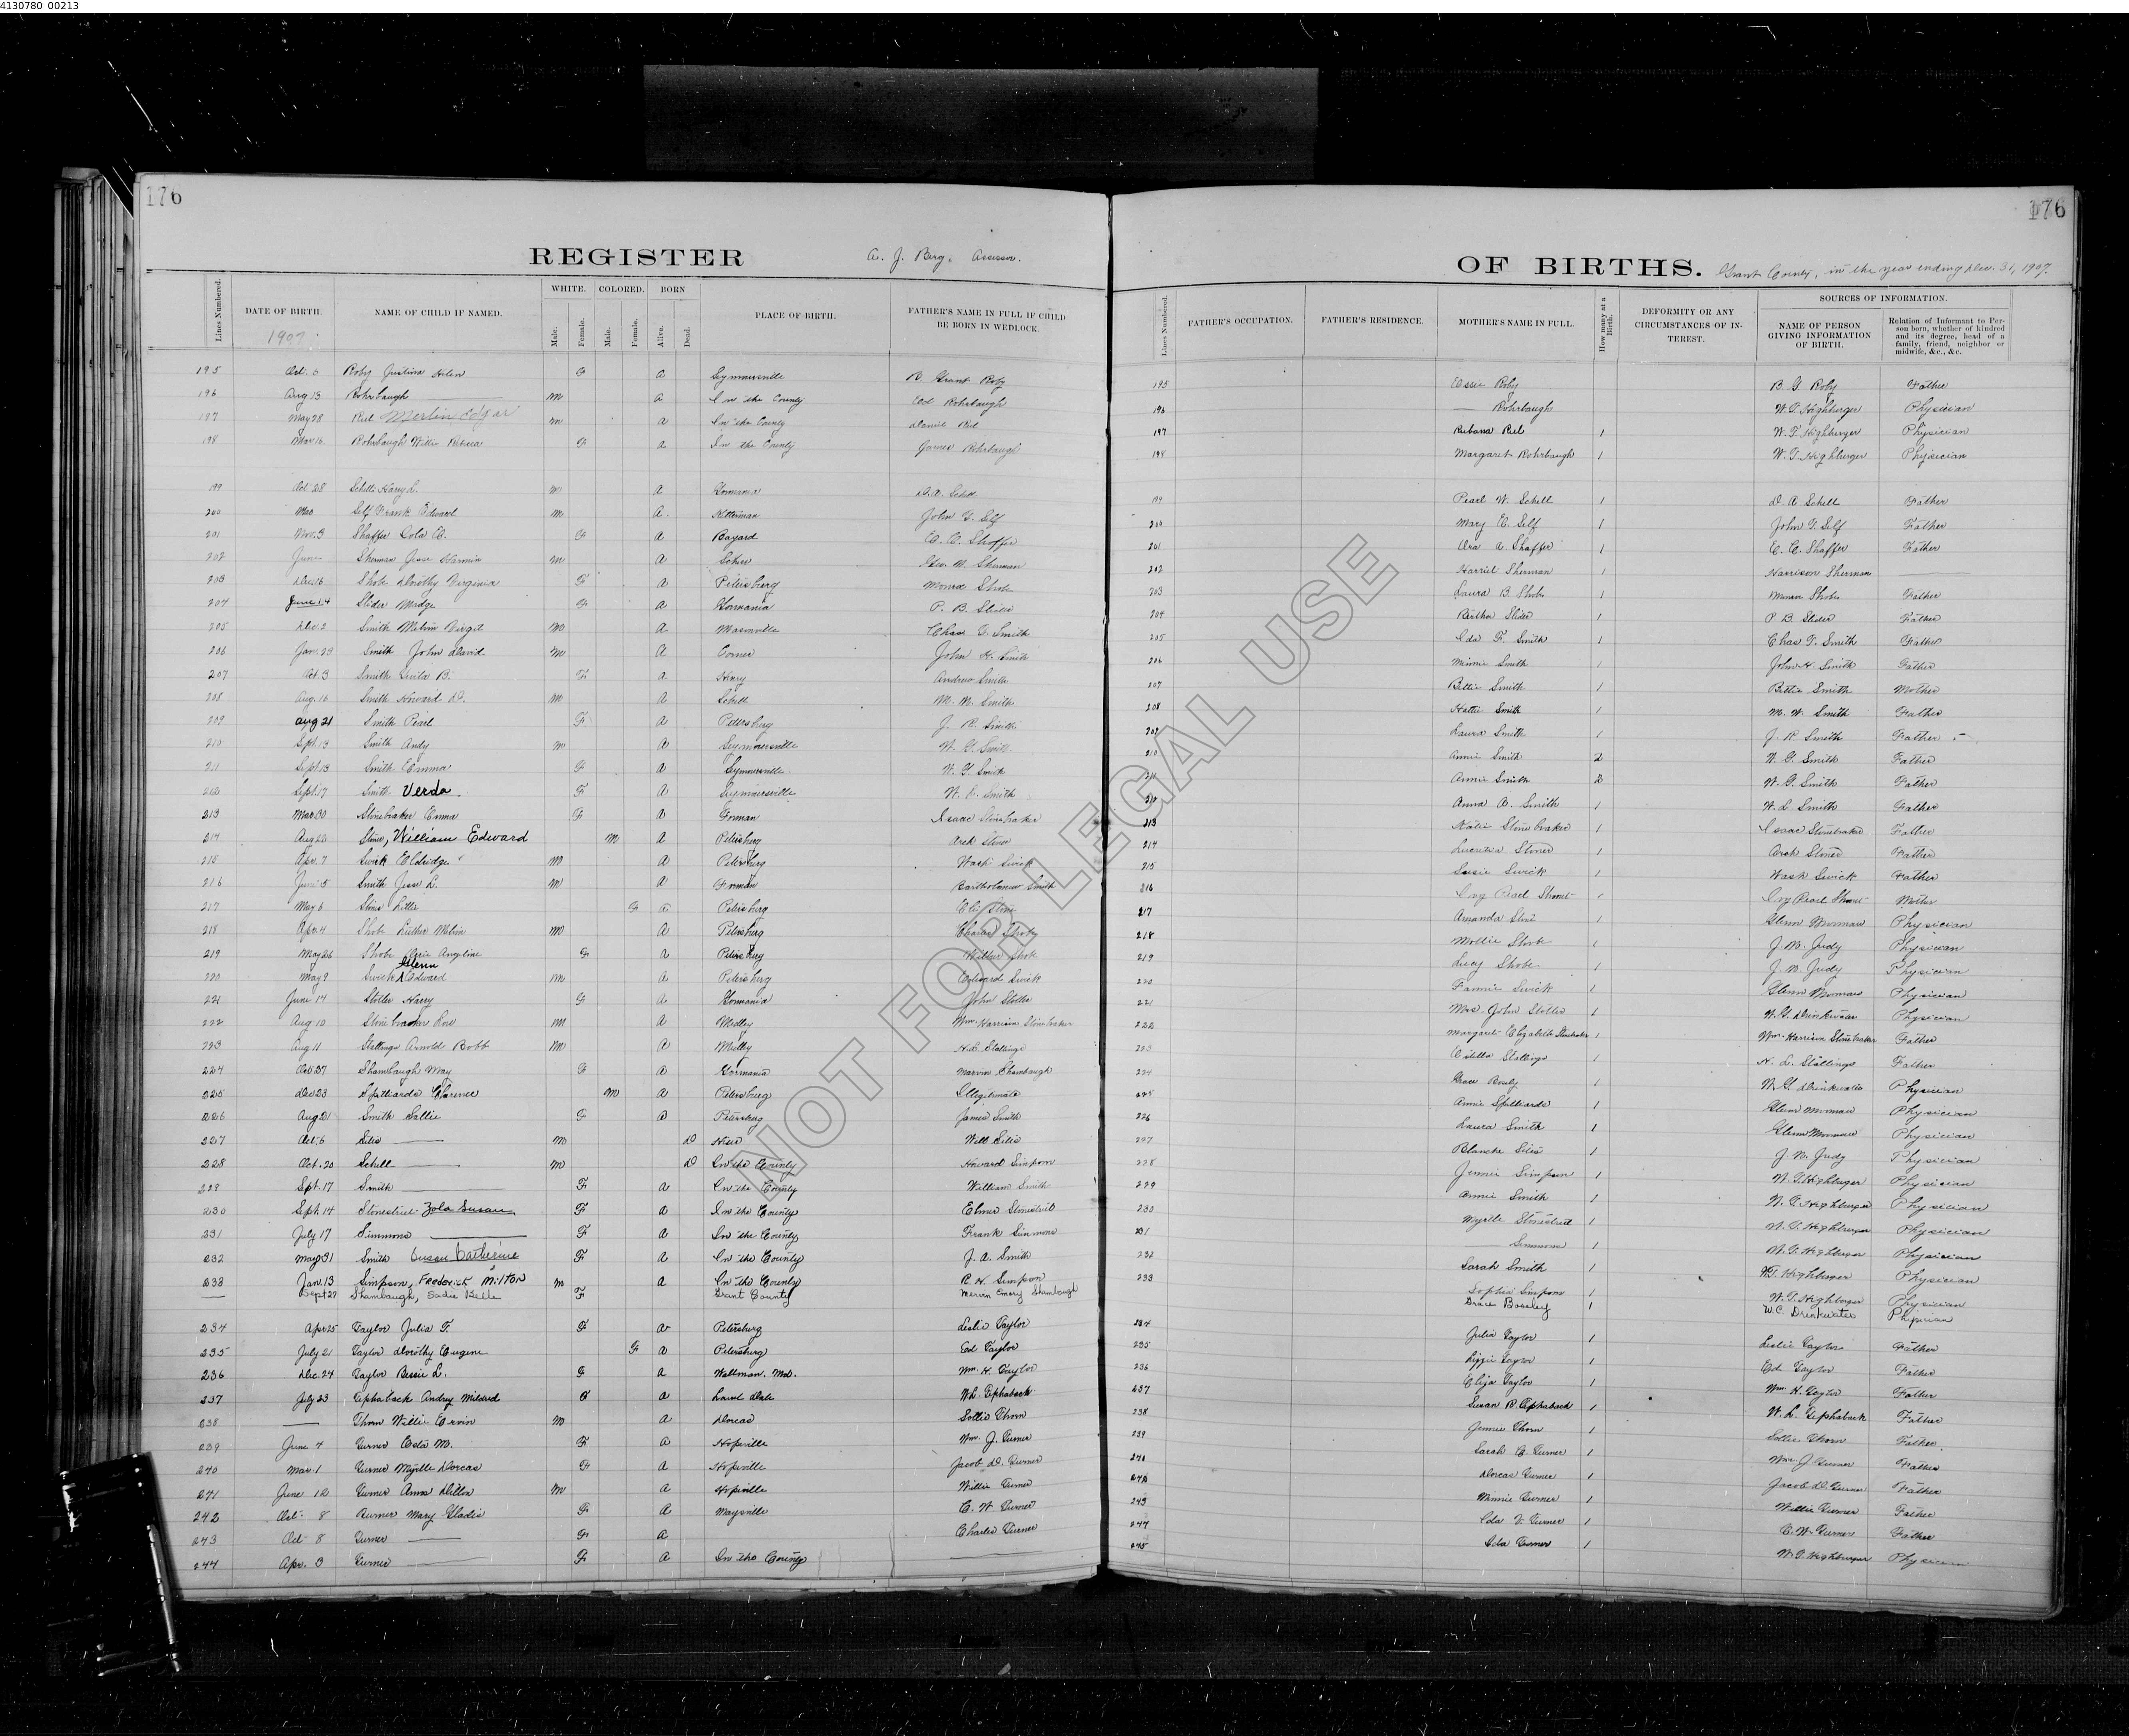 4130780_00213
176
176
REGISTER
A. J. Berg, Assessor.
OF BIRTHS.
Grant County, in the year ending Dec. 31, 1907.
Lines Numbered.
DATE OF BIRTH.
1907.
NAME OF CHILD IF NAMED.
WHITE.
COLORED.
BORN
Male.
Female.
Male.
Female.
Alive.
Dead.
PLACE OF BIRTH.
FATHER'S NAME IN FULL IF CHILD
BE BORN IN WEDLOCK.
Lines Numbered.
FATHER'S OCCUPATION.
FATHER'S RESIDENCE.
MOTHER'S NAME IN FULL.
How many at a Birth.
DEFORMITY OR ANY
CIRCUMSTANCES OF IN-
TEREST.
SOURCES OF INFORMATION.
NAME OF PERSON
GIVING INFORMATION
OF BIRTH.
Relation of Informant to Per-
son born, whether of kindred
and its degree, head of a
family, friend, neighbor or
midwife, &c., &c.
195 Oct. 6 Roby Justina Helen F a Seymoursville B. Grant Roby 195 Essie Roby B. G. Roby Father
196 Aug 13 Rohrbaugh m a In the County Rohrbaugh 196 Rohrbaugh W. T. Highberger Physician
197 May 28 Merlin Edgar m a In the County 197 1 W. T. Highberger Physician
198 Mar 16 Rohrbaugh F a In the County James Rohrbaugh 198 Margaret Rohrbaugh 1 W. T. Highberger Physician
199 Oct 28 Schell Harry L. m a Gormania D. A. Schell 199 Pearl W. Schell 1 D. A. Schell Father
200 Self Frank Edward m a Ketterman John T. Self 200 Mary E. Self 1 John T. Self Father
201 Nov. 3 Shaffer Lola F a Bayard C. C. Shaffer 201 Ora A. Shaffer 1 C. C. Shaffer Father
202 June Sherman Jesse m a Scherr Sherman 202 Harriet Sherman 1 Harrison Sherman
203 Dec 16 Shobe Dorothy Virginia F a Petersburg Shobe 203 Laura B. Shobe 1 Shobe Father
204 June 14 Slider Madge F a Gormania P. B. Slider 204 Bertha Slider 1 P. B. Slider Father
205 Dec. 2 Smith Melvin Virgil m a Maysville Chas T. Smith 205 Ida F. Smith 1 Chas T. Smith Father
206 Jan. 23 Smith John David m a Corner John H. Smith 206 Minnie Smith 1 John H. Smith Father
207 Oct. 3 Smith B. F a Henry Andrew Smith 207 Bettie Smith 1 Bettie Smith Mother
208 Aug. 16 Smith Howard D. m a Schell M. M. Smith 208 Hattie Smith 1 M. W. Smith Father
209 Aug 21 Smith Pearl F a Petersburg J. R. Smith 209 Laura Smith 1 J. R. Smith Father
210 Sept. 13 Smith Andy m a Seymoursville W. G. Smith 210 Annie Smith 2 W. G. Smith Father
211 Sept 13 Smith Emma F a Seymoursville W. G. Smith 211 Annie Smith 2 W. G. Smith Father
212 Sept. 17 Smith Verda F a Seymoursville W. L. Smith 212 Anna A. Smith 1 W. L. Smith Father
213 Mar. 30 Stonebraker Emma F a Forman Isaac Stonebraker 213 Katie Stonebraker 1 Isaac Stonebraker Father
214 Aug 20 Stoner, William Edward m a Petersburg Arch Stoner 214 Lucretia Stoner 1 Arch Stoner Father
215 Apr. 7 Swick Eldridge m a Petersburg Wash Swick 215 Susie Swick 1 Wash Swick Father
216 June 5 Smith Jesse L. m a Forman Bartholomew Smith 216 Ivy Pearl 1 Ivy Pearl Mother
217 May 6 Lillie F a Petersburg 217 Amanda 1 Glenn Moomau Physician
218 Apr. 4 Shobe Luther Melvin m a Petersburg Charles Shobe 218 Mollie Shobe 1 J. M. Judy Physician
219 May 26 Shobe Angeline F a Petersburg Shobe 219 Lucy Shobe 1 J. M. Judy Physician
220 May 9 Swick Glenn Edward m a Petersburg Edward Swick 220 Fannie Swick 1 Glenn Moomau Physician
221 June 14 Stotler Harry F a Gormania John Stotler 221 Mrs. John Stotler 1 W. C. Drinkwater Physician
222 Aug 10 Stonebraker m a Medley Wm. Harrison Stonebraker 222 Margaret Elizabeth Stonebraker 1 Wm. Harrison Stonebraker Father
223 Aug 11 Stallings Arnold Bobb m a Medley Stallings 223 Stallings 1 Stallings Father
224 Oct. 27 Shambaugh May F a Gormania Marvin Shambaugh 224 Grace 1 W. C. Drinkwater Physician
225 Dec 23 Clarence m a Petersburg Illegitimate 225 Annie 1 Glenn Moomau Physician
226 Aug 21 Smith Sallie F a Petersburg James Smith 226 Laura Smith 1 Glenn Moomau Physician
227 Oct. 6 Sites m D Hiser Will Sites 227 Blanche Sites 1 J. M. Judy Physician
228 Oct. 20 Schell m D In the County Howard Simpson 228 Jennie Simpson 1 W. T. Highberger Physician
229 Sept. 17 Smith F a In the County William Smith 229 Annie Smith 1 W. T. Highberger Physician
230 Sept. 14 Stonestreet Zola Susan F a In the County Elmer Stonestreet 230 Myrtle Stonestreet 1 W. T. Highberger Physician
231 July 17 Simmons F a In the County Frank Simmons 231 Simmons 1 W. T. Highberger Physician
232 May 31 Smith Catherine F a In the County J. A. Smith 232 Sarah Smith 1 W. T. Highberger Physician
233 Jan. 13 Simpson, Frederick Milton m a In the County R. H. Simpson 233 Sophia Simpson 1 W. T. Highberger Physician
Sept 27 Shambaugh, Sadie Belle F Grant County Mervin Emery Shambaugh Grace Bosley 1 W. C. Drinkwater Physician
234 Apr 25 Taylor Julia F. F a Petersburg Leslie Taylor 234 Julia Taylor 1 Leslie Taylor Father
235 July 21 Taylor Dorothy Eugene F a Petersburg Ed Taylor 235 Lizzie Taylor 1 Ed Taylor Father
236 Dec. 24 Taylor Bessie L. F a Wellman, Md. Wm. H. Taylor 236 Eliza Taylor 1 Wm. H. Taylor Father
237 July 23 Mildred F a Laurel Dale 237 Susan 1 Father
238 Thorn Willie Ervin m a Dorcas Sollie Thorn 238 Jennie Thorn 1 Sollie Thorn Father
239 June 4 Turner Esta M. F a Hopeville Wm. J. Turner 239 Sarah C. Turner 1 Wm. J. Turner Father
240 Mar. 1 Turner Myrtle Dorcas F a Hopeville Jacob D. Turner 241 Dorcas Turner 1 Jacob D. Turner Father
241 June 12 Turner Amos m a Hopeville Willie Turner 242 Minnie Turner 1 Willie Turner Father
242 Oct. 8 Turner Mary Gladis F a Maysville C. W. Turner 243 Ida V. Turner 1 C. W. Turner Father
243 Oct 8 Turner F a Charles Turner 244 Ida Turner 1 W. T. Highberger Physician
244 Apr. 3 Turner F a In the County 245
NOT FOR LEGAL USE